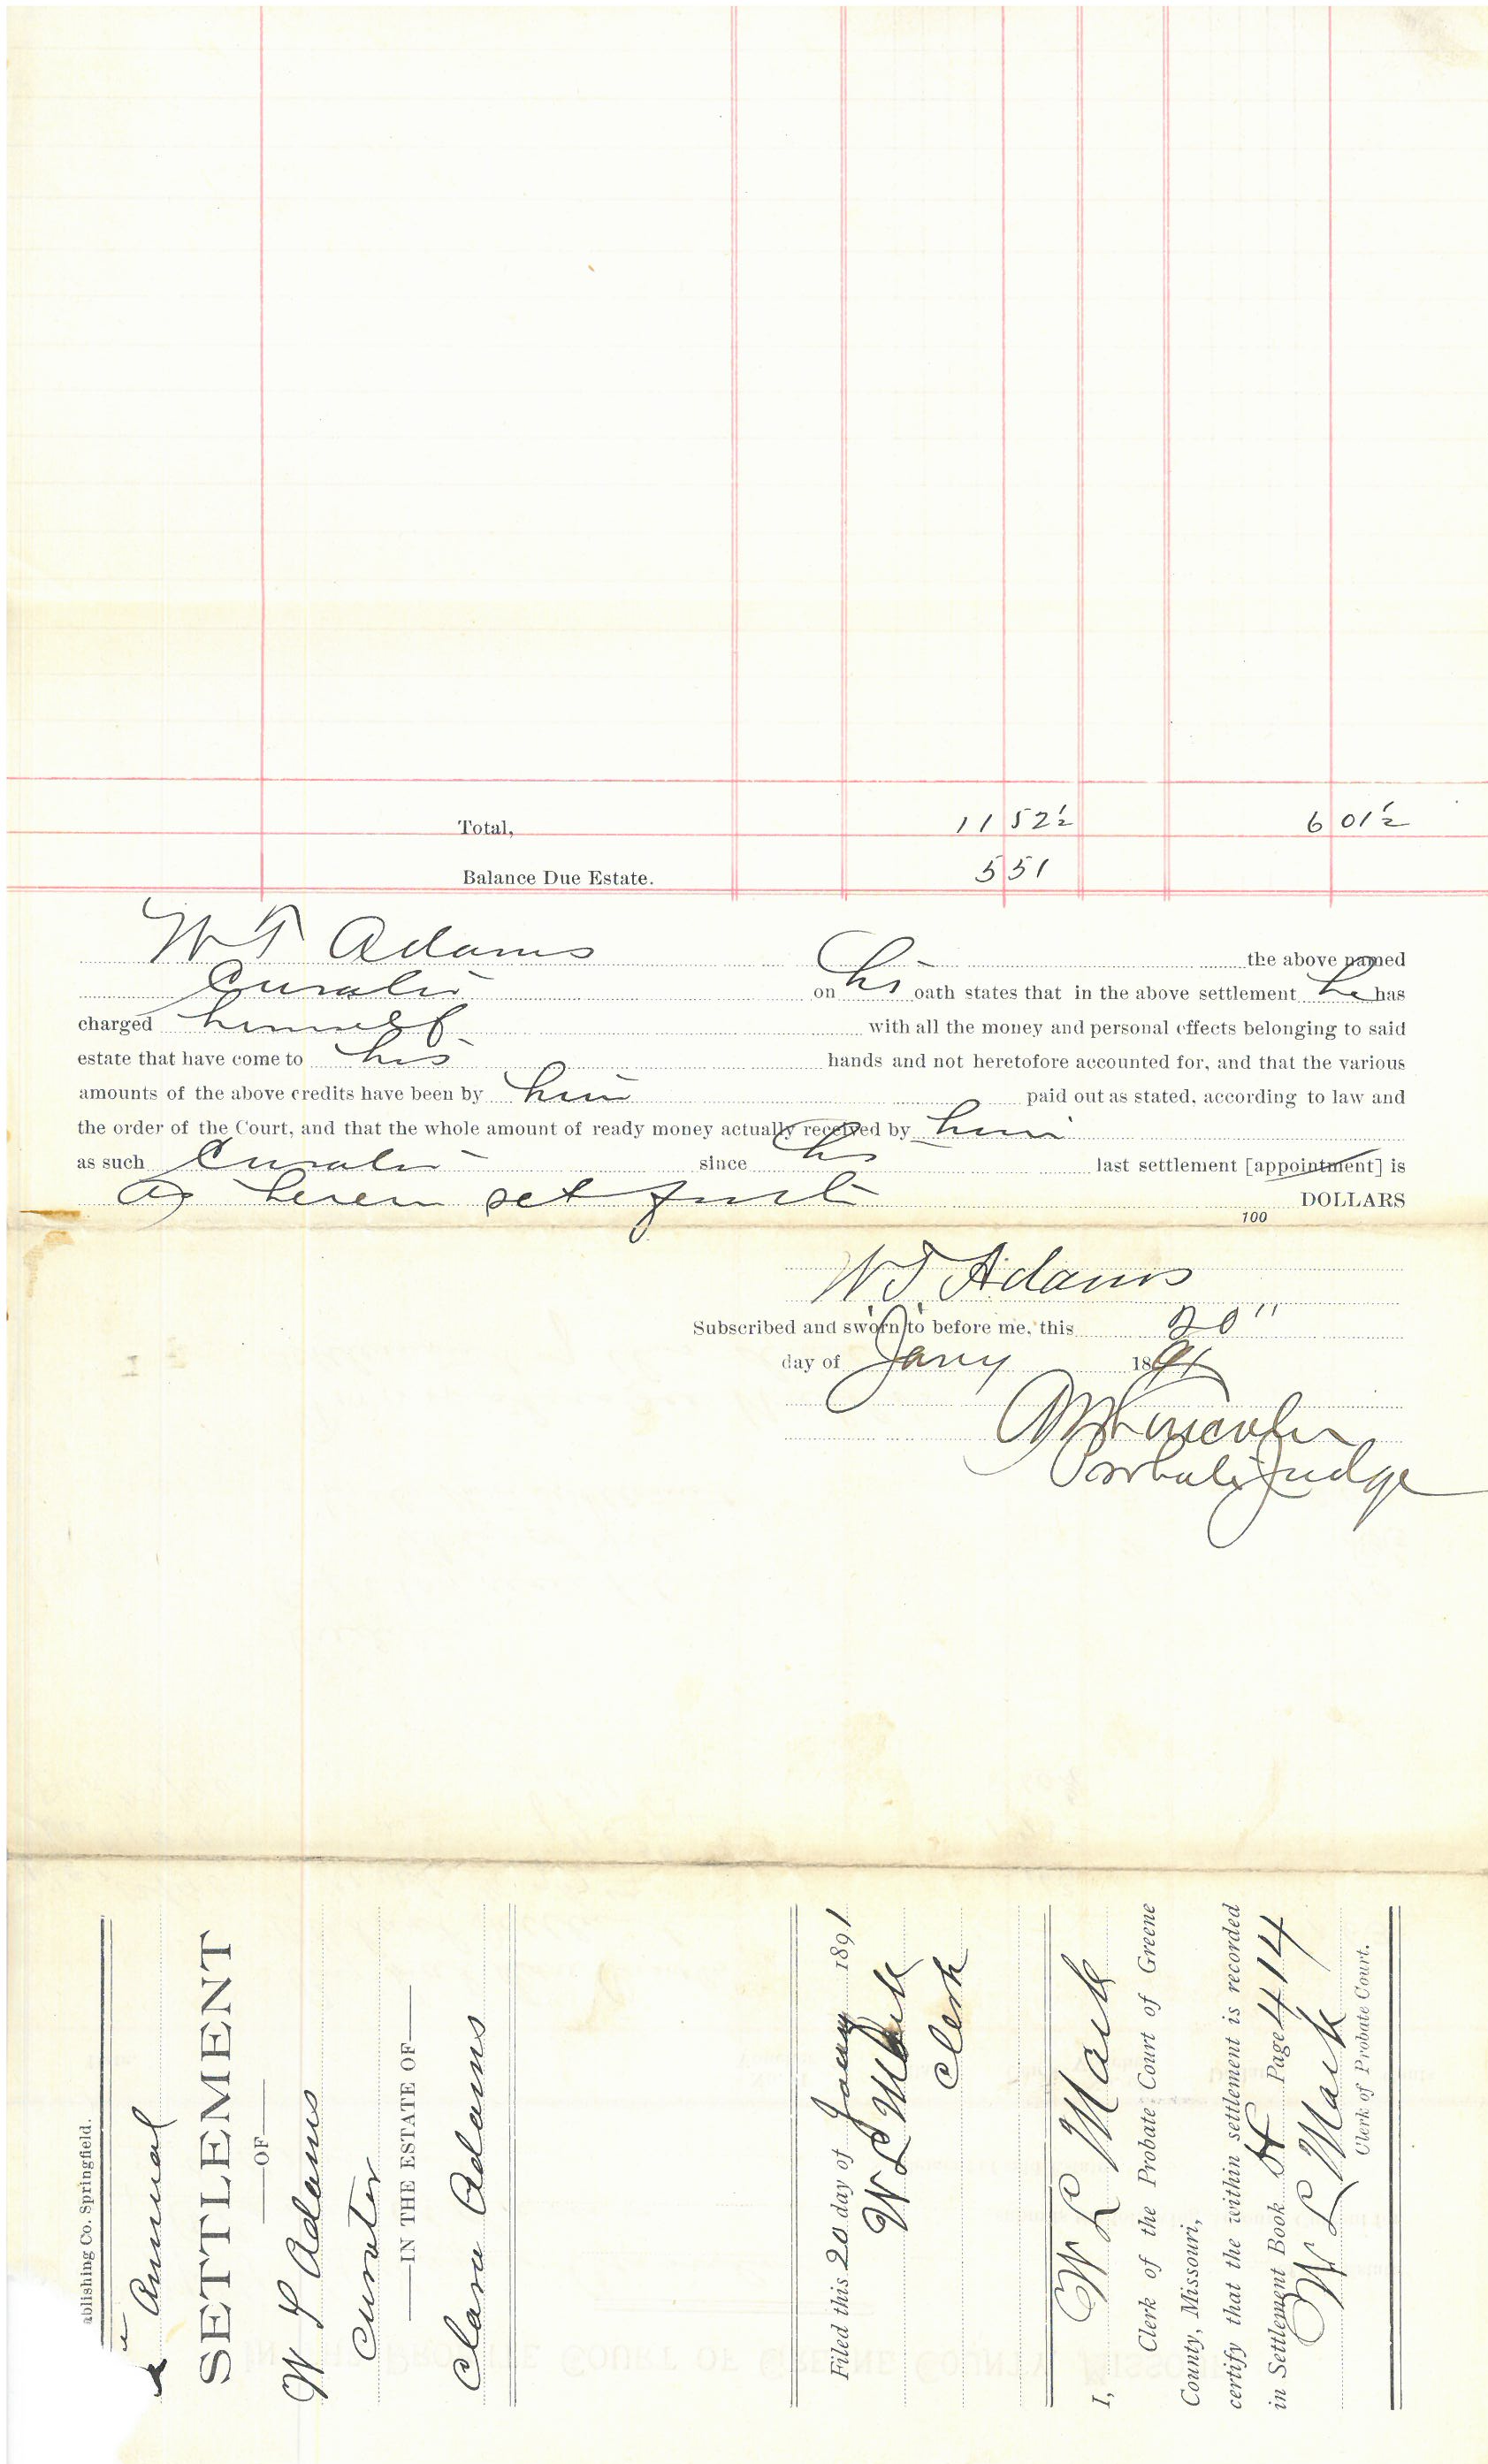 Total, 11 52½ 6 01½
Balance Due Estate. 5 51
W T Adams the above named
Curator on his oath states that in the above settlement he has
charged himself with all the money and personal effects belonging to said
estate that have come to his hands and not heretofore accounted for, and that the various
amounts of the above credits have been by him paid out as stated, according to law and
the order of the Court, and that the whole amount of ready money actually received by him
as such Curator since his last settlement [appointment] is
As herein set forth DOLLARS
100
W T Adams
Subscribed and sworn to before me, this 20"
day of Jany 1891
Probate Judge
ablishing Co. Springfield.
Annual
SETTLEMENT
—OF—
W T Adams
Curator
—IN THE ESTATE OF—
Clara Adams
Filed this 20 day of Jany 1891
W L Mack
Clerk
I, W L Mack
Clerk of the Probate Court of Greene
County, Missouri,
certify that the within settlement is recorded
in Settlement Book H Page 414
W L Mack
Clerk of Probate Court.